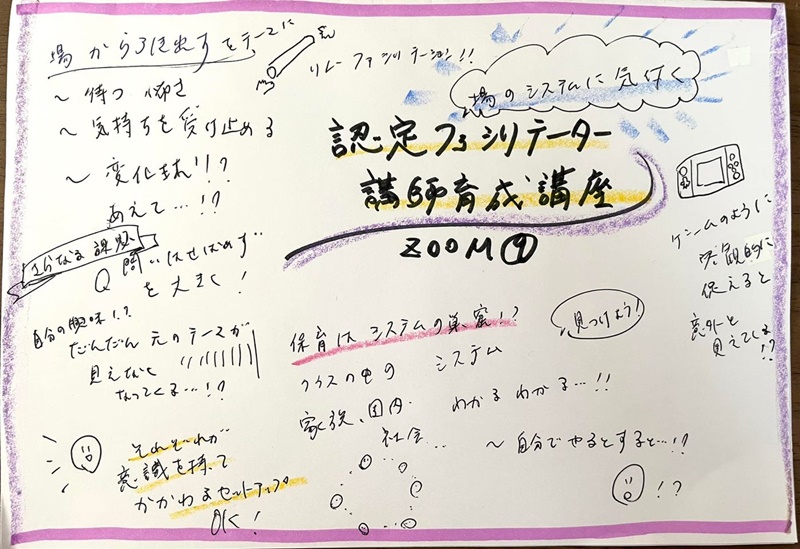 場から引き出すをテーマに
リレーファシリテーション!!
場のシステムに気付く
認定ファシリテーター
講師育成講座
ZOOM⑨
〜待つ 傾き
〜気持ちを受け止める
〜変化まれ!!?
あえて…!?
さらなる課題
Q 問いはせばめず
を大きく!
自分の興味!?
だんだん 元のテーマが
見えなく
なってくる…!?
それぞれが
意識を持って
かかわるセットアップ
OK!
保育はシステムの巣窟!?
クラスの中の システム
家族、園内、
社会…
わかるわかる…!!
〜自分でやるとすると…!?
!?
見つけよう!
ゲームのように
客観的に
捉えると
意外と
見えてくる
!?